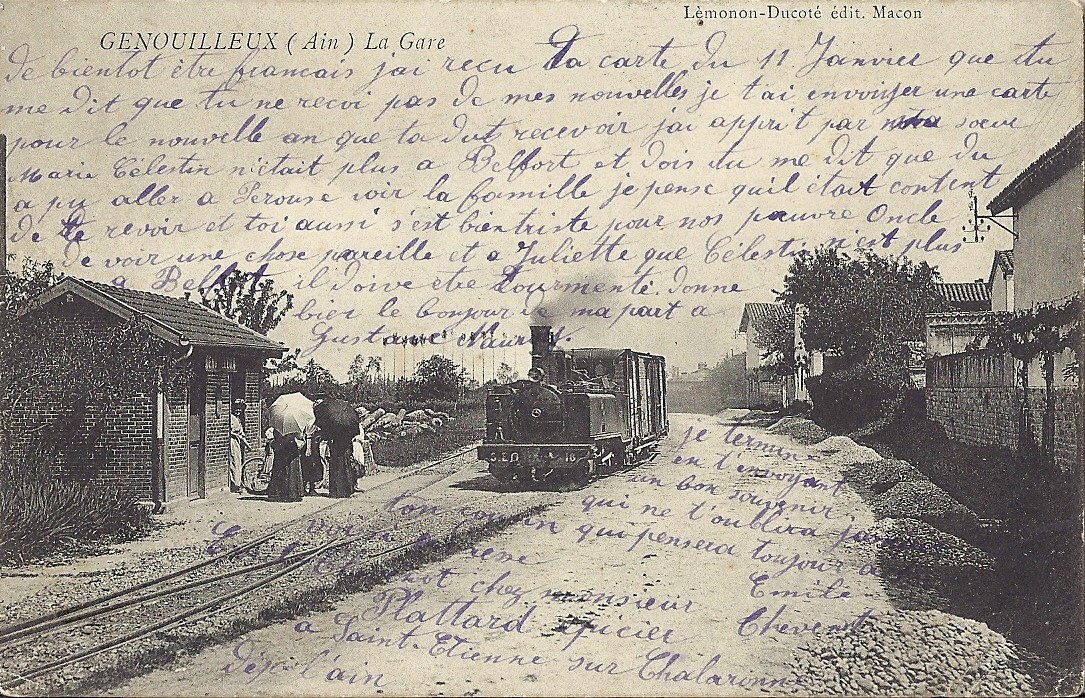 Lèmonon-Ducoté édit. Macon
GENOUILLEUX (Ain) La Gare
de bientot être francais jai recu ta carte du 11 Janvier que tu
me dit que tu ne recoi pas de mes nouvelles je t'ai envoyer une carte
pour le nouvelle an que ta dut recevoir jai apprit par soeur
Marie Célestin n'était plus a Belfort et dois tu me dit que du
a pu aller a Perouse voir la famille je pense quil était content
de te revoir et toi aussi s'est bien triste pour nos pauvre Oncle
de voir une chose pareille et a Juliette que Célestin n'est plus
a Belfort il doive etre tourmenté. donne
bien le bonjour de ma part a
Gustave
je termine
en t'envoyant
un bon souvenir
qui ne t'oublira
ton cousin qui pensera toujour a
Emile
Chevenot
chez monsieur
Plattard épicier
a Saint-Etienne sur Chalaronne
dép l'ain
S.E. 16